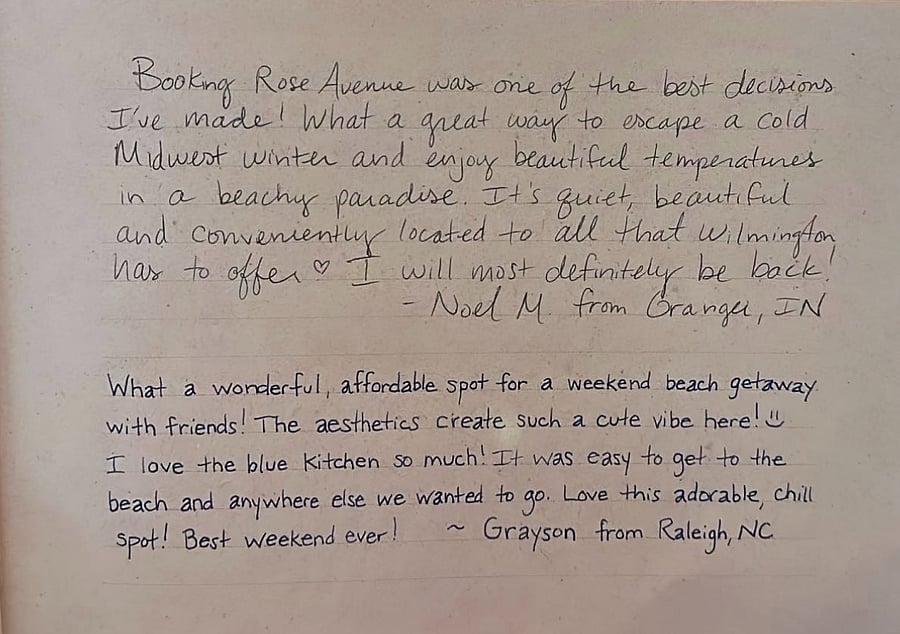 Booking Rose Avenue was one of the best decisions
I've made! What a great way to escape a cold
Midwest winter and enjoy beautiful temperatures
in a beachy paradise. It's quiet, beautiful
and conveniently located to all that Wilmington
has to offer ♡ I will most definitely be back!
- Noel M. from Granger, IN
What a wonderful, affordable spot for a weekend beach getaway
with friends! The aesthetics create such a cute vibe here! ☺
I love the blue kitchen so much! It was easy to get to the
beach and anywhere else we wanted to go. Love this adorable, chill
spot! Best weekend ever! ~ Grayson from Raleigh, NC